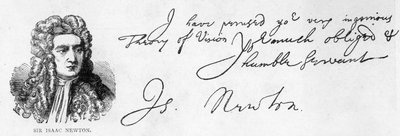 I have perused yor very ingenious
Theory of Vision
much obliged &
humble Servant
Is. Newton.
SIR ISAAC NEWTON.